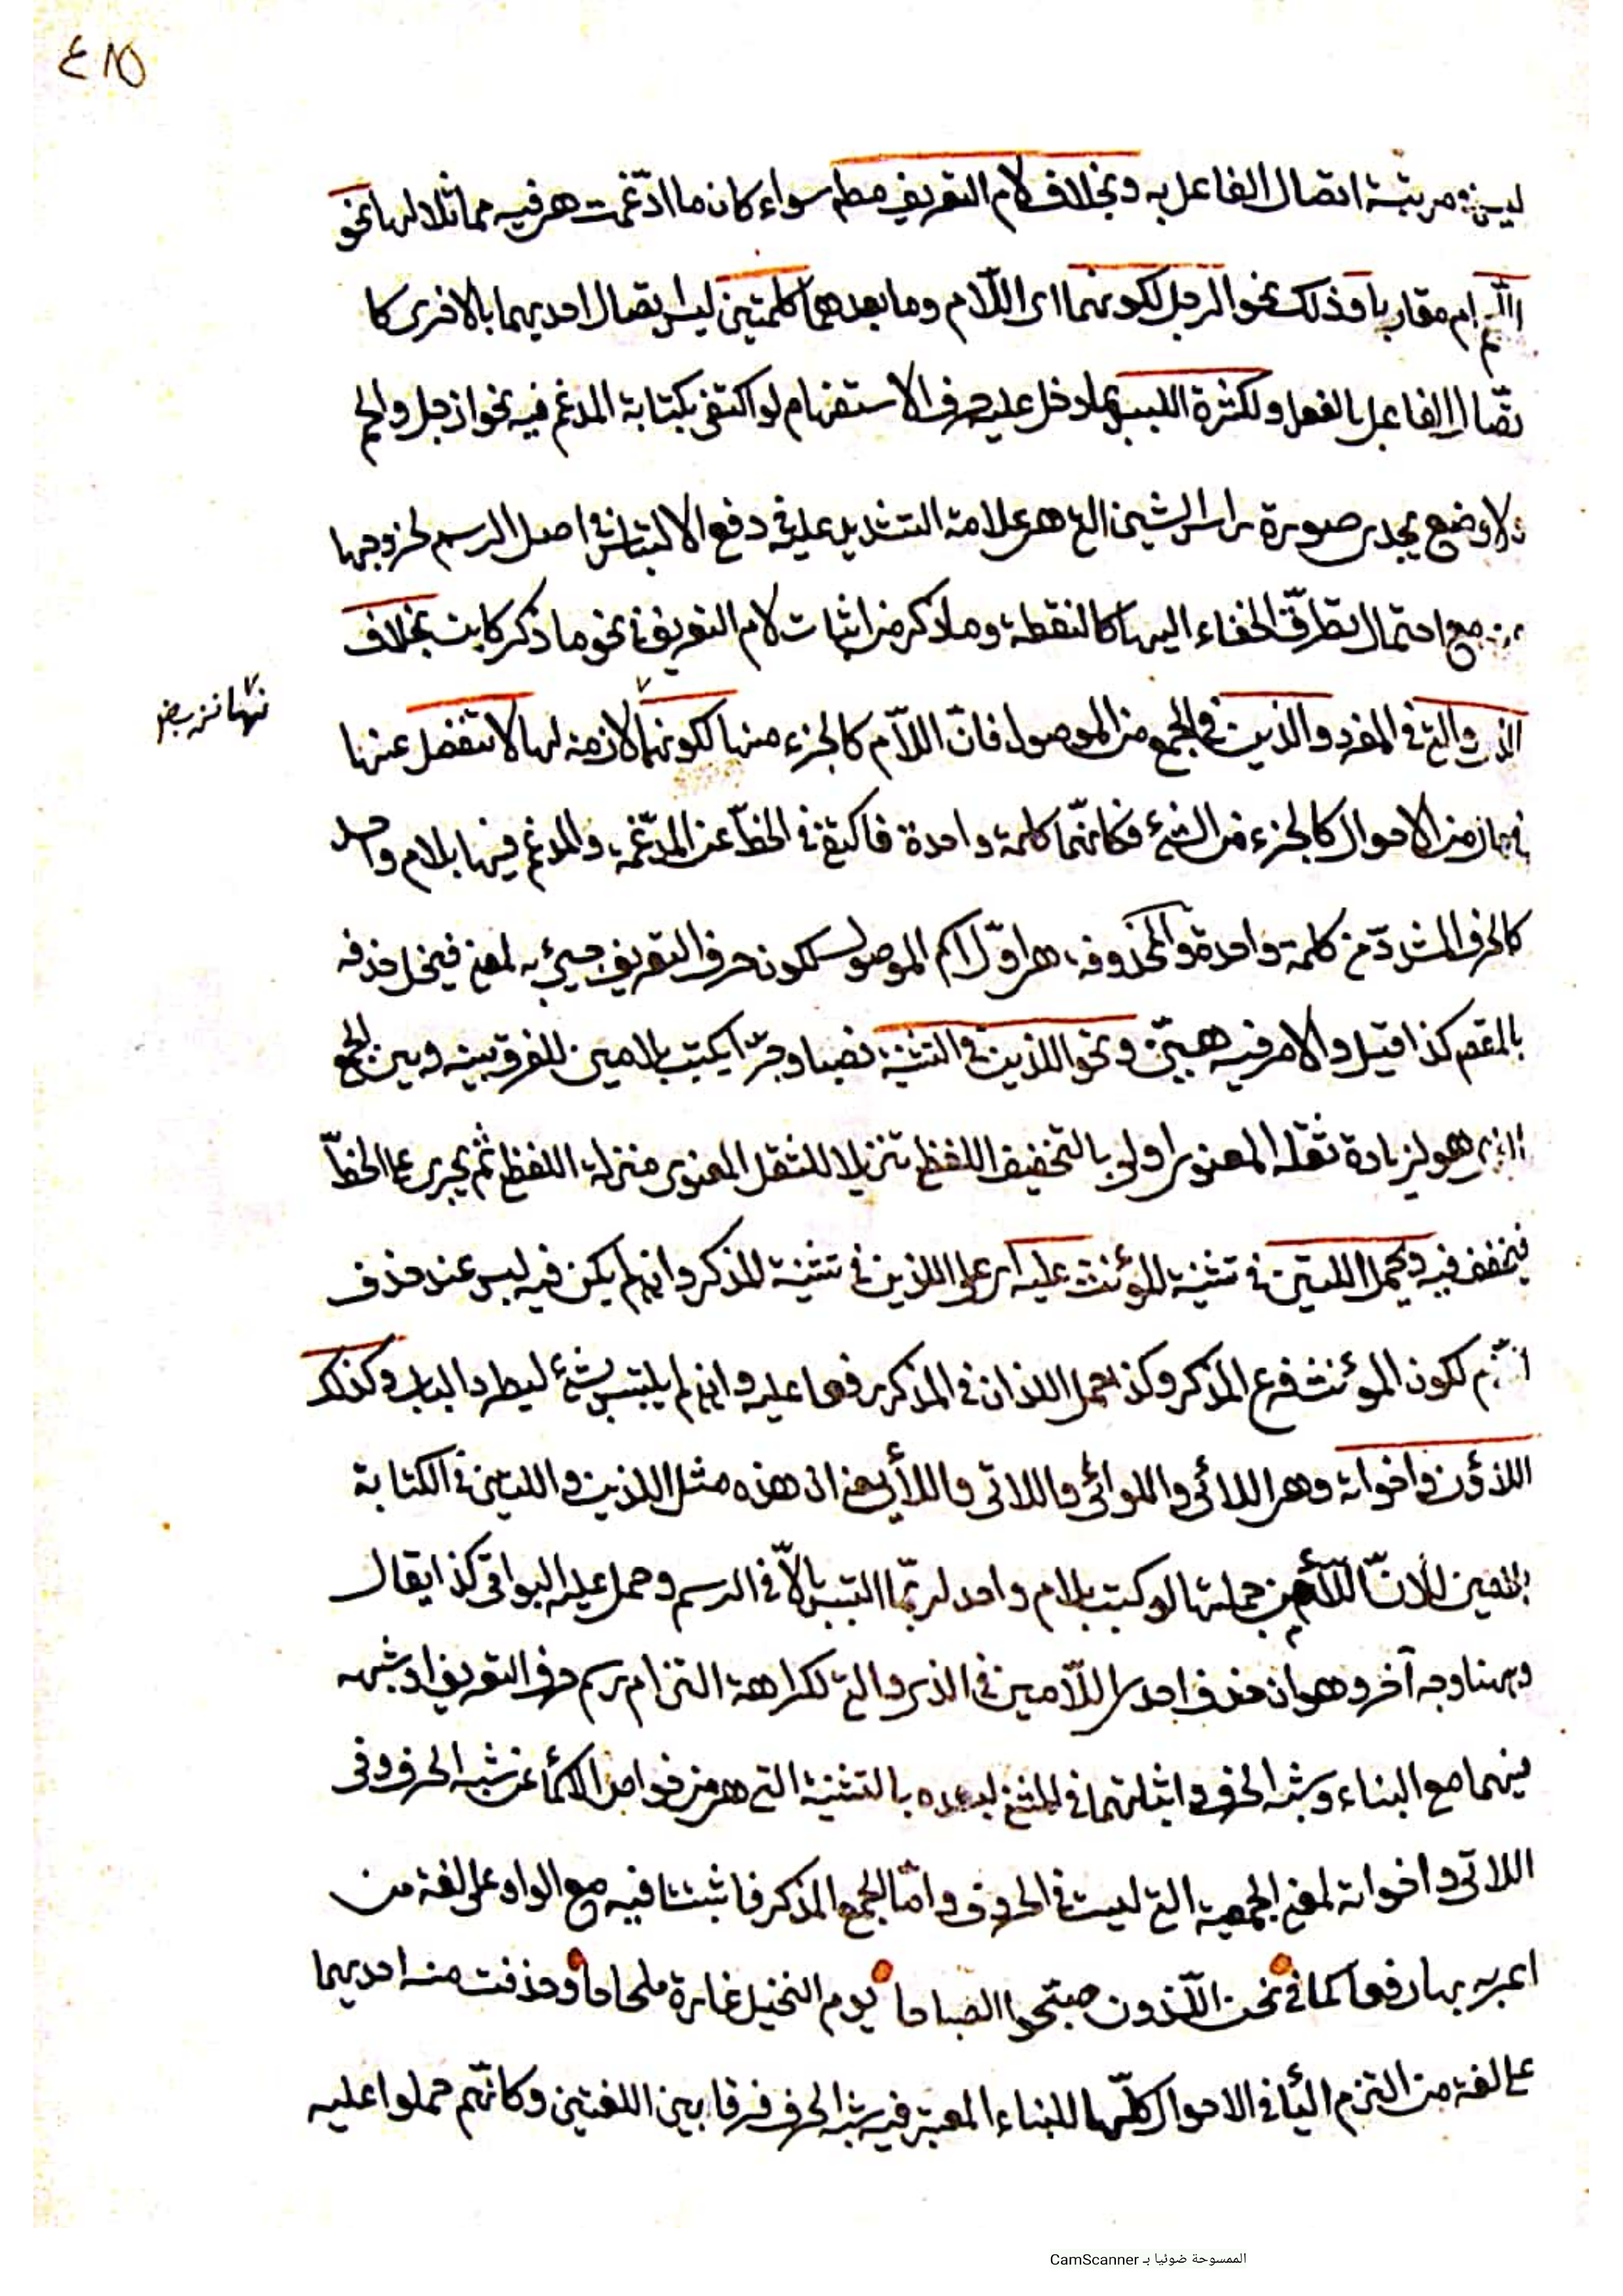 ٤١٥
مرتبة اتصال الفاعل به وبخلاف لام التعريف مطم سواء كان ما ادّغمت هى فيه مماثلا لها نحو
ام مقاربا وذلك نحو الرجل لكونهما اى اللّام وما بعدهما كلمتين ليس اتصال احديهما بالاخرى كا
تصال الفاعل بالفعل ولكثرة اللبس بما دخل عليه حرف الاستفهام لو اكتفى بكتابة المدغم فيه نحو ازجل والحم
ولا وضع يجدى صورة راس الشين التى هى علامة التشديد عليه فى دفع الالتباس فى اصل الرسم لخروجها
مع احتمال تطرّق الخفاء اليها كالنقطة وما ذكر من اثبات لام التعريف فى نحو ما ذكر كاين بخلاف
الذى والتى فى المفرد والذين فى الجمع من الموصول فانّ اللاّم كالجزء منها لكونها لازمة لها لا تنفصل عنها
من الاحوال كالجزء من الشئ فكانهّما كلمة واحدة فاكتفى فى الخطّ عن المدّغمة والمدغم فيها بلام واحد
كالحرف المشدّد من كلمة واحدة والمحذوفة هى اوّل لام الموصول لكون حرف التعريف جيئ به لمعنى فيخل حذفه
بالمقصم كذا قيل والامر فيه هيّن ونحو اللذين فى التثنية نصبا وجرّا يكتب بلامين للفرق بينه وبين الجمع
الذى هو لزيادة ثقله المعنوى اولى بالتخفيف اللفظى تنزيلا للثقل المعنوى منزلة اللفظى ثم يجرى على الخطّ
فيخفف فيه وحمل اللتين فى تثنية المؤنث عليه اى على اللذين فى تثنية المذكر وان لم يكن فيه لبس عند حذف
اللام لكون المؤنث فرع المذكر وكذا حمل اللذان فى المذكر رفعا عليه وان لم يلتبس بشئ ليطرد الباب وكذلك
اللاؤن واخواته وهى اللائى واللوائى واللاتى واللأى يعنى ان هذه مثل اللذين واللتين فى الكتابة
بلامين لانّ اللاّء من جملتها لو كتبت بلام واحد لربّما التبس بالاّ فى الرسم وحمل عليه البواقى كذا يقال
وههنا وجه آخر وهو ان حذف احدى اللّامين فى الذى والتى لكراهة التزام رسم حرف التعريف او شبهه
فيهما مع البناء وشبه الحرف واثباتهما فى المثنى لبعده بالتثنية التى هى من خواص الاسماء عن شبه الحرف وفى
اللاتى واخواته لمعنى الجمعية التى ليست فى الحروف وامّا الجمع المذكر فاثبتتا فيه مع الواو على لغة من
اعربه بها رفعا كما فى نحن اللّذون صبّحوا الصباحا يوم النخيل غارة ملحاحا وحذفت منه احديهما
على لغة من التزم اليأ فى الاحوال كلّها للبناء المعتبر فيه شبه الحرف فرقا بين اللغتين وكانّهم حملوا عليه
الممسوحة ضوئيا بـ CamScanner